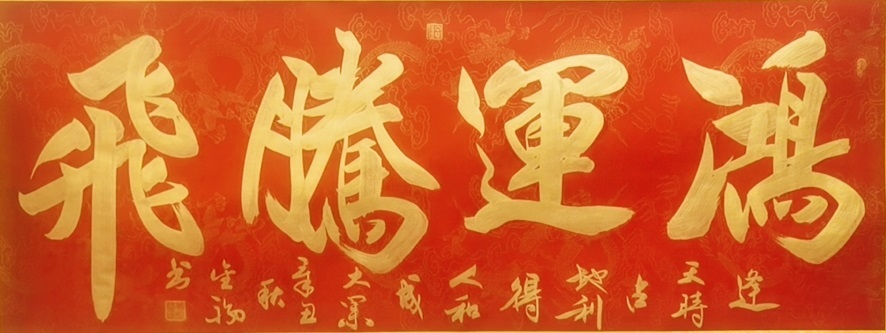 鴻運騰飛
逢
天時
占
地利
得
人和
成
大業
辛丑
秋
書